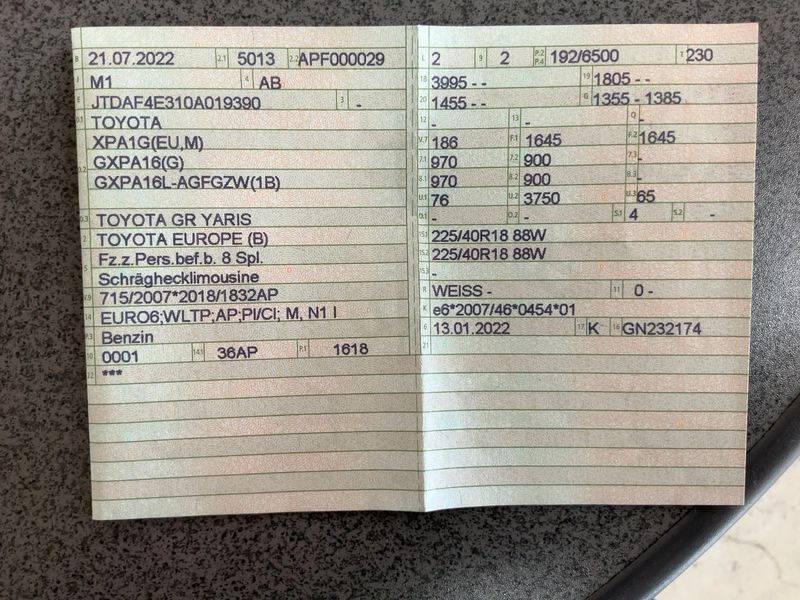 B 21.07.2022 2.1 5013 2.2 APF000029
J M1 4 AB
E JTDAF4E310A019390 3 -
D.1 TOYOTA
XPA1G(EU,M)
D.2 GXPA16(G)
GXPA16L-AGFGZW(1B)
D.3 TOYOTA GR YARIS
2 TOYOTA EUROPE (B)
5 Fz.z.Pers.bef.b. 8 Spl.
Schräghecklimousine
V.9 715/2007*2018/1832AP
14 EURO6;WLTP;AP;PI/CI; M, N1 I
P.3 Benzin
10 0001 14.1 36AP P.1 1618
22 ***
L 2 9 2 P.2 P.4 192/6500 T 230
18 3995 - - 19 1805 - -
20 1455 - - G 1355 - 1385
12 - 13 - Q -
V.7 186 F.1 1645 F.2 1645
7.1 970 7.2 900 7.3 -
8.1 970 8.2 900 8.3 -
U.1 76 U.2 3750 U.3 65
O.1 - O.2 - S.1 4 S.2 -
15.1 225/40R18 88W
15.2 225/40R18 88W
15.3 -
R WEISS - 11 0 -
K e6*2007/46*0454*01
6 13.01.2022 17 K 16 GN232174
21